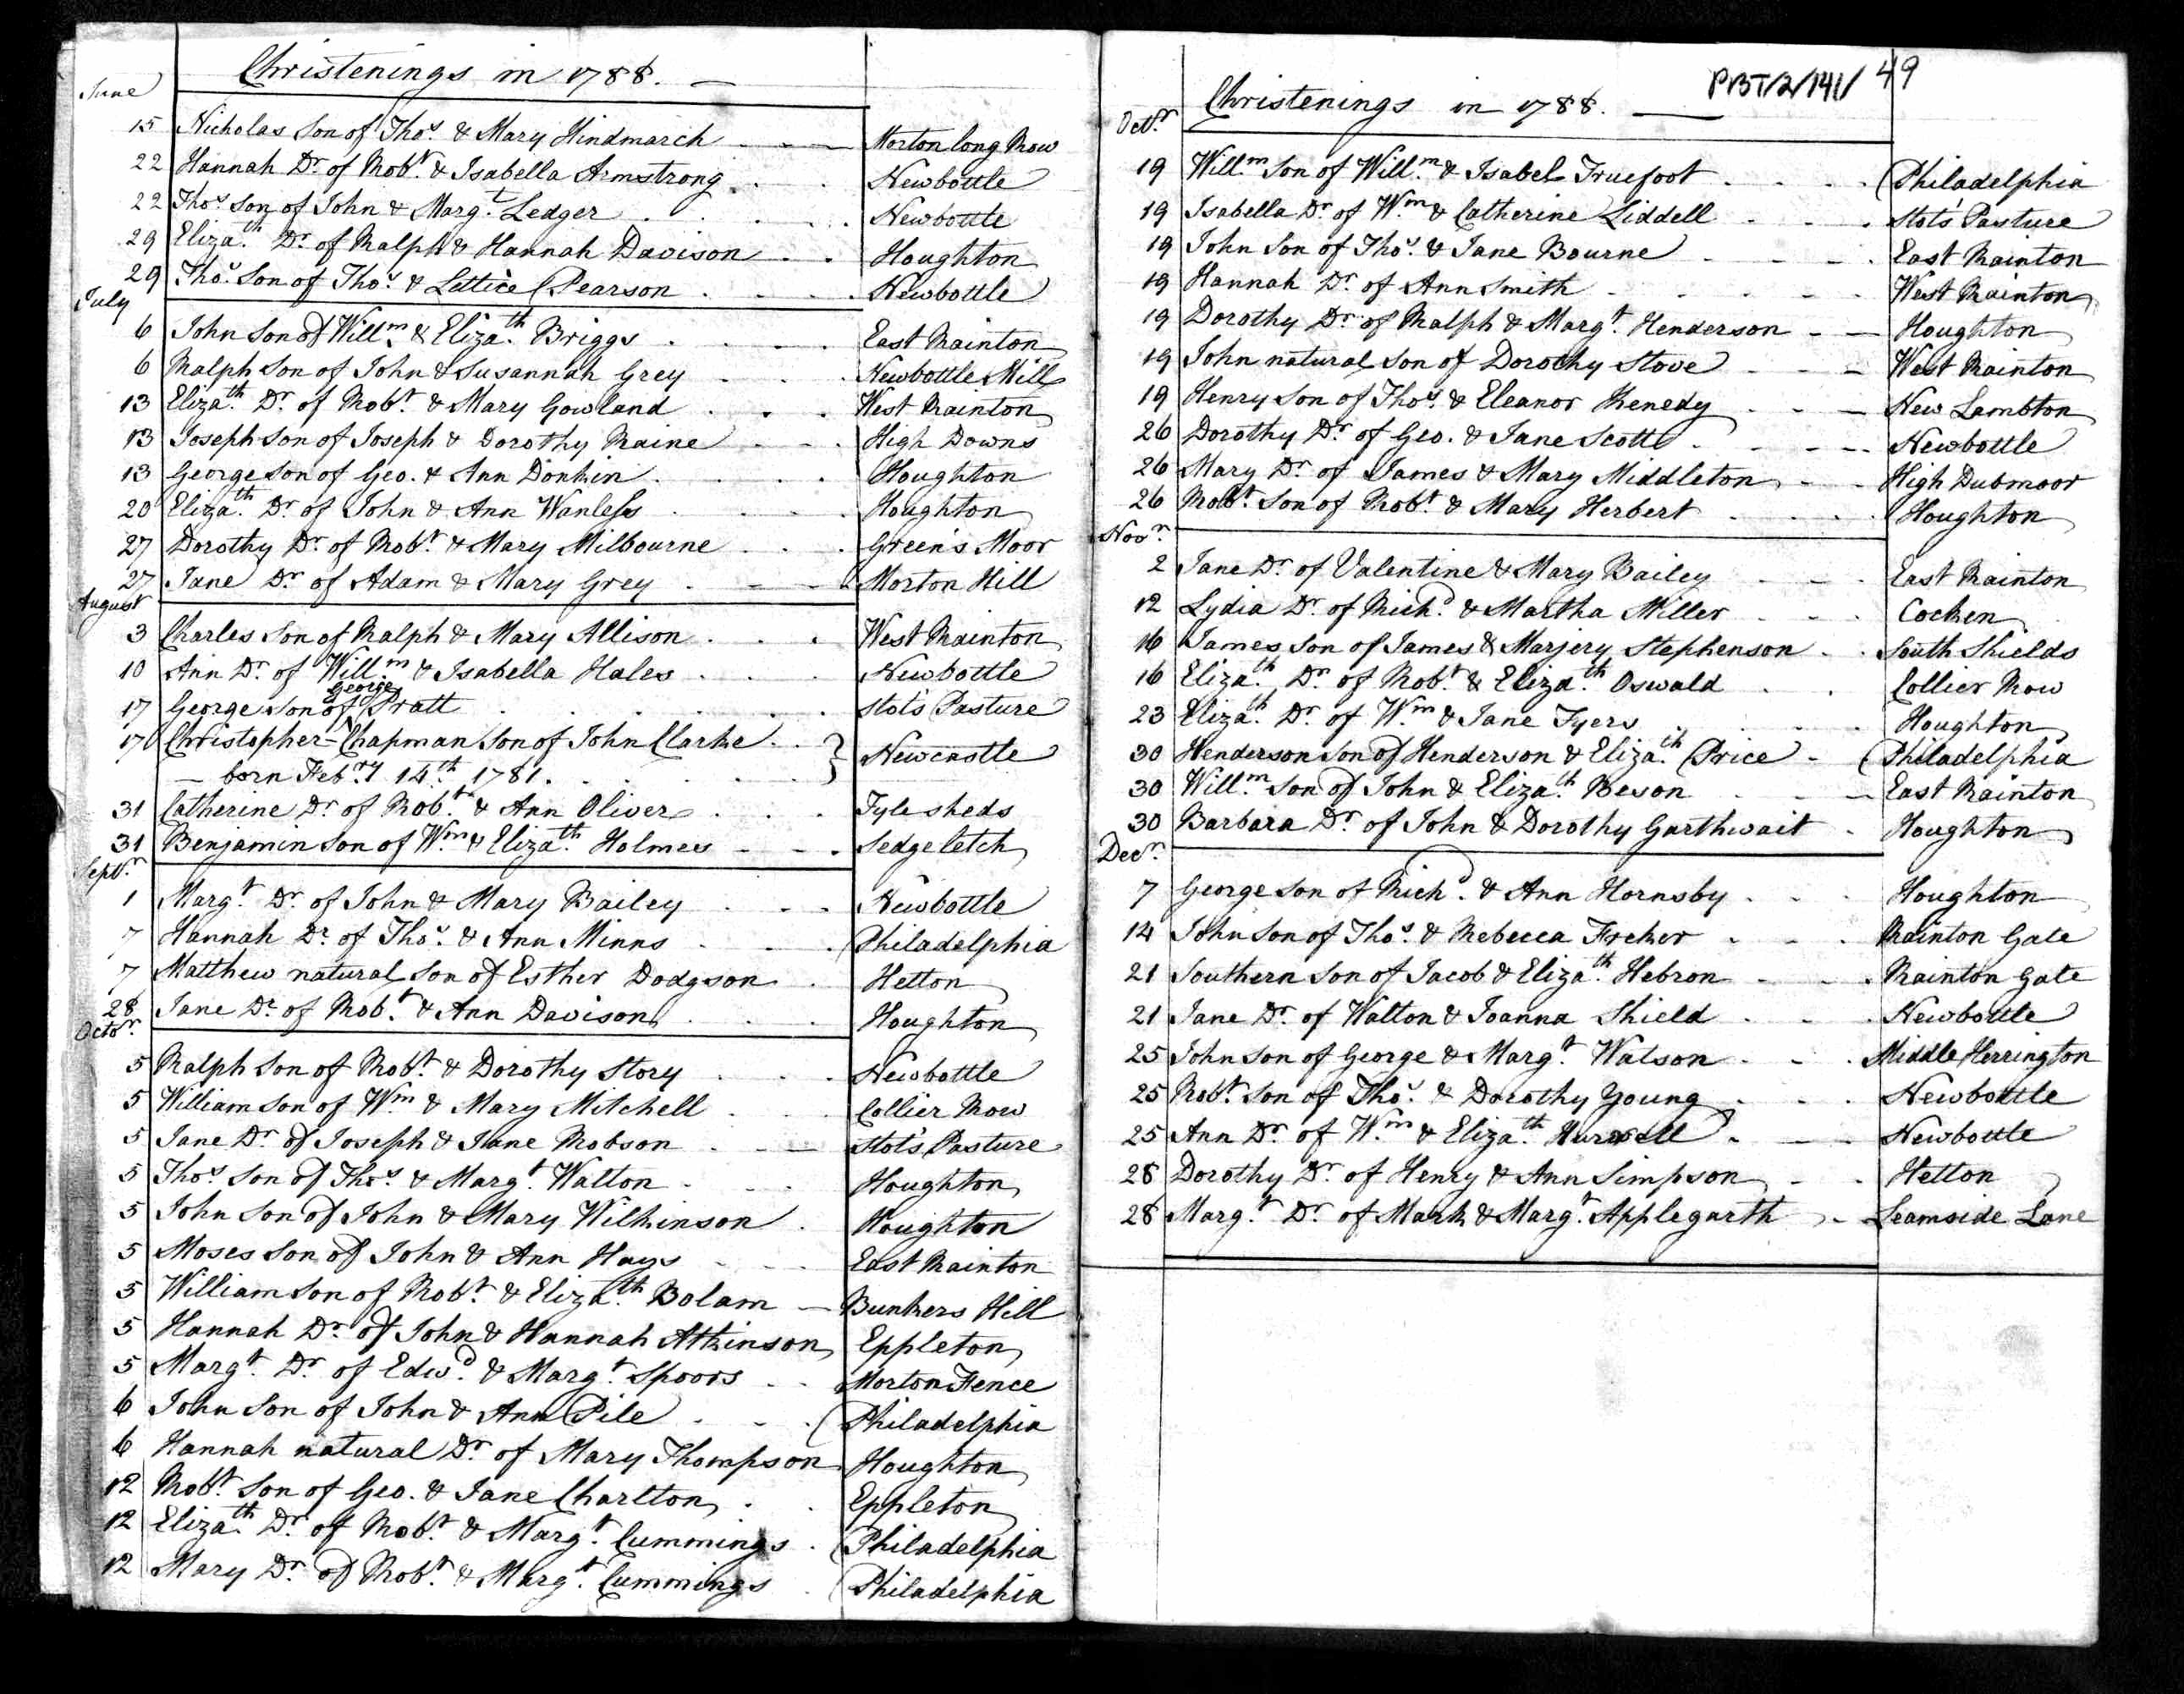 Christenings in 1788.
June
15 Nicholas Son of Thos. & Mary Hindmarch Morton long Row
22 Hannah Dr. of Robt. & Isabella Armstrong Newbottle
22 Thos. Son of John & Margt. Ledger Newbottle
29 Elizath. Dr. of Ralph & Hannah Davison Houghton
29 Thos. Son of Thos. & Lettice Pearson Newbottle
July
6 John Son of Willm. & Elizath. Briggs East Rainton
6 Ralph Son of John & Susannah Grey Newbottle Mill
13 Elizath. Dr. of Robt. & Mary Gowland West Rainton
13 Joseph Son of Joseph & Dorothy Raine High Downs
13 George Son of Geo. & Ann Donkin Houghton
20 Elizath. Dr. of John & Ann Wanless Houghton
27 Dorothy Dr. of Robt. & Mary Milbourne Green's Moor
27 Jane Dr. of Adam & Mary Grey Morton Hill
August
3 Charles Son of Ralph & Mary Allison West Rainton
10 Ann Dr. of Willm. & Isabella Hales Newbottle
17 George Son of George Pratt Stot's Pasture
17 Christopher-Chapman Son of John Clarke } Newcastle
– born Febry. 14th. 1781.
31 Catherine Dr. of Robt. & Ann Oliver Tyle sheds
31 Benjamin Son of Wm. & Elizath. Holmes Sedgeletch
Septr.
1 Margt. Dr. of John & Mary Bailey Newbottle
7 Hannah Dr. of Thos. & Ann Minns Philadelphia
7 Matthew natural Son of Esther Dodgson Hetton
28 Jane Dr. of Robt. & Ann Davison Houghton
Octor.
5 Ralph Son of Robt. & Dorothy Story Newbottle
5 William Son of Wm. & Mary Mitchell Collier Row
5 Jane Dr. of Joseph & Jane Robson Stot's Pasture
5 Thos. Son of Thos. & Margt. Watton Houghton
5 John Son of John & Mary Wilkinson Houghton
5 Moses Son of John & Ann Hays East Rainton
5 William Son of Robt. & Elizath. Bolam Bunkers Hill
5 Hannah Dr. of John & Hannah Atkinson Eppleton
5 Margt. Dr. of Edwd. & Margt. Spoors Morton Fence
6 John Son of John & Ann Pile Philadelphia
6 Hannah natural Dr. of Mary Thompson Houghton
12 Robt. Son of Geo. & Jane Charlton Eppleton
12 Elizath. Dr. of Robt. & Margt. Cummings Philadelphia
12 Mary Dr. of Robt. & Margt. Cummings Philadelphia
PBT/2/141/ 49
Christenings in 1788.
Octr.
19 Willm. Son of Willm. & Isabel Truefoot Philadelphia
19 Isabella Dr. of Wm. & Catherine Liddell Stot's Pasture
19 John Son of Thos. & Jane Bourne East Rainton
19 Hannah Dr. of Ann Smith West Rainton
19 Dorothy Dr. of Ralph & Margt. Henderson Houghton
19 John natural Son of Dorothy Stove West Rainton
19 Henry Son of Thos. & Eleanor Kenedy New Lambton
26 Dorothy Dr. of Geo. & Jane Scott Newbottle
26 Mary Dr. of James & Mary Middleton High Dubmoor
26 Robt. Son of Robt. & Mary Herbert Houghton
Novr.
2 Jane Dr. of Valentine & Mary Bailey East Rainton
12 Lydia Dr. of Richd. & Martha Miller Cocken
16 James Son of James & Marjery Stephenson South Shields
16 Elizath. Dr. of Robt. & Elizath. Oswald Collier Row
23 Elizath. Dr. of Wm. & Jane Tyers Houghton
30 Henderson Son of Henderson & Elizath. Price Philadelphia
30 Willm. Son of John & Elizath. Beson East Rainton
30 Barbara Dr. of John & Dorothy Garthwait Houghton
Decr.
7 George Son of Richd. & Ann Hornsby Houghton
14 John Son of Thos. & Rebecca Rainton Gate
21 Southern Son of Jacob & Elizath. Hebron Rainton Gate
21 Jane Dr. of Walton & Joanna Shield Newbottle
25 John Son of George & Margt. Watson Middle Herrington
25 Robt. Son of Thos. & Dorothy Young Newbottle
25 Ann Dr. of Wm. & Elizath. Newbottle
28 Dorothy Dr. of Henry & Ann Simpson Hetton
28 Margt. Dr. of Mark & Margt. Applegarth Leamside Lane